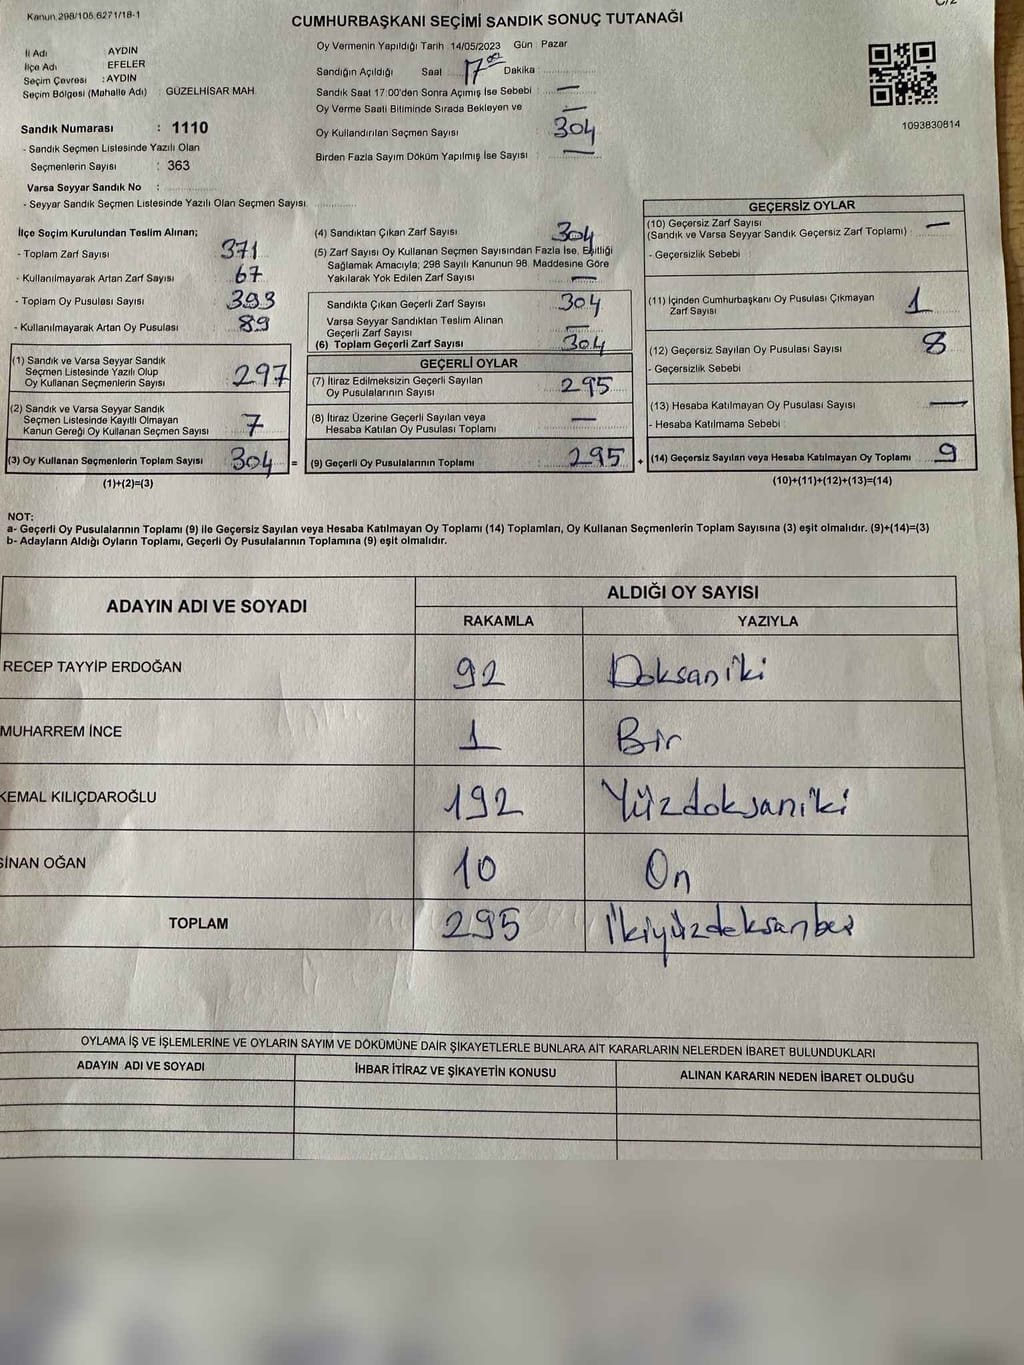 Kanun 298/105,6271/18-1
C/2
CUMHURBAŞKANI SEÇİMİ SANDIK SONUÇ TUTANAĞI
İl Adı AYDIN
İlçe Adı EFELER
Seçim Çevresi : AYDIN
Seçim Bölgesi (Mahalle Adı) : GÜZELHİSAR MAH.
Sandık Numarası : 1110
- Sandık Seçmen Listesinde Yazılı Olan
Seçmenlerin Sayısı : 363
Varsa Seyyar Sandık No :
- Seyyar Sandık Seçmen Listesinde Yazılı Olan Seçmen Sayısı
Oy Vermenin Yapıldığı Tarih : 14/05/2023 Gün : Pazar
Sandığın Açıldığı Saat 17 00 Dakika
Sandık Saat 17:00'den Sonra Açımış İse Sebebi : —
Oy Verme Saati Bitiminde Sırada Bekleyen ve —
Oy Kullandırılan Seçmen Sayısı 304
Birden Fazla Sayım Döküm Yapılmış İse Sayısı : —
1093830814
İlçe Seçim Kurulundan Teslim Alınan;
- Toplam Zarf Sayısı 371
- Kullanılmayarak Artan Zarf Sayısı 67
- Toplam Oy Pusulası Sayısı 393
- Kullanılmayarak Artan Oy Pusulası 89
(1) Sandık ve Varsa Seyyar Sandık
Seçmen Listesinde Yazılı Olup
Oy Kullanan Seçmenlerin Sayısı 297
(2) Sandık ve Varsa Seyyar Sandık
Seçmen Listesinde Kayıtlı Olmayan
Kanun Gereği Oy Kullanan Seçmen Sayısı 7
(3) Oy Kullanan Seçmenlerin Toplam Sayısı 304 =
(1)+(2)=(3)
(4) Sandıktan Çıkan Zarf Sayısı 304
(5) Zarf Sayısı Oy Kullanan Seçmen Sayısından Fazla İse, Eşitliği
Sağlamak Amacıyla; 298 Sayılı Kanunun 98. Maddesine Göre
Yakılarak Yok Edilen Zarf Sayısı —
Sandıkta Çıkan Geçerli Zarf Sayısı 304
Varsa Seyyar Sandıktan Teslim Alınan
Geçerli Zarf Sayısı —
(6) Toplam Geçerli Zarf Sayısı 304
GEÇERLİ OYLAR
(7) İtiraz Edilmeksizin Geçerli Sayılan
Oy Pusulalarının Sayısı 295
(8) İtiraz Üzerine Geçerli Sayılan veya
Hesaba Katılan Oy Pusulası Toplamı —
(9) Geçerli Oy Pusulalarının Toplamı 295 +
GEÇERSİZ OYLAR
(10) Geçersiz Zarf Sayısı —
(Sandık ve Varsa Seyyar Sandık Geçersiz Zarf Toplamı) :
- Geçersizlik Sebebi :
(11) İçinden Cumhurbaşkanı Oy Pusulası Çıkmayan
Zarf Sayısı 1
(12) Geçersiz Sayılan Oy Pusulası Sayısı 8
- Geçersizlik Sebebi :
(13) Hesaba Katılmayan Oy Pusulası Sayısı —
- Hesaba Katılmama Sebebi
(14) Geçersiz Sayılan veya Hesaba Katılmayan Oy Toplamı 9
(10)+(11)+(12)+(13)=(14)
NOT:
a- Geçerli Oy Pusulalarının Toplamı (9) ile Geçersiz Sayılan veya Hesaba Katılmayan Oy Toplamı (14) Toplamları, Oy Kullanan Seçmenlerin Toplam Sayısına (3) eşit olmalıdır. (9)+(14)=(3)
b- Adayların Aldığı Oyların Toplamı, Geçerli Oy Pusulalarının Toplamına (9) eşit olmalıdır.
ADAYIN ADI VE SOYADI
ALDIĞI OY SAYISI
RAKAMLA YAZIYLA
RECEP TAYYİP ERDOĞAN 92 Doksaniki
MUHARREM İNCE 1 Bir
KEMAL KILIÇDAROĞLU 192 Yüzdoksaniki
SİNAN OĞAN 10 On
TOPLAM 295 İkiyüzdoksanbeş
OYLAMA İŞ VE İŞLEMLERİNE VE OYLARIN SAYIM VE DÖKÜMÜNE DAİR ŞİKAYETLERLE BUNLARA AİT KARARLARIN NELERDEN İBARET BULUNDUKLARI
ADAYIN ADI VE SOYADI İHBAR İTİRAZ VE ŞİKAYETİN KONUSU ALINAN KARARIN NEDEN İBARET OLDUĞU